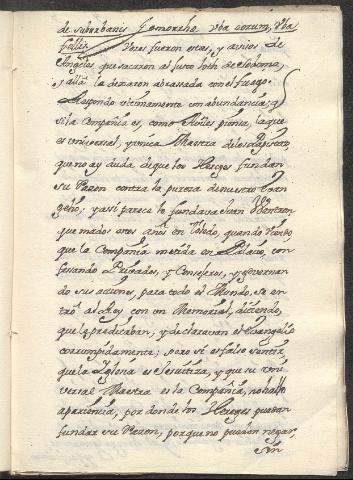 de suburbanis Gomorrhe uba eorum, Uba
fellis. Voces fueron estas, y avisos de
Angeles, que sacaron al justo Loth de Sodoma,
y alla la dexaron abrassada con el fuego.
Respondo ultimamente con abundancia; q
si la Compañia es, como Aviles pinta, la que
es universal, y unica Maestra de los Papistas,
que no ay duda de que los Hereges fundan
su Razon contra la pureza de nuestro Evan
gelio; y assi parece lo fundava Juan
quemados estos años en Toledo, quando viendo,
que la Compañia metida en Palacio, con
fessando Privados, y Consejeros, y governan
do sus acciones, para todo el Mundo, se en
tró al Rey con un Memorial, diciendo,
que le predicaban, y declaravan el Evangelio
corrumpidamente; pero si es falso sentir,
que la Iglesia es Jesuitiza, y que su uni
versal Maestra es la Compañia, no hallo
apariencia, por donde los Hereges puedan
fundar su Razon, porque no pueden negar,
sin